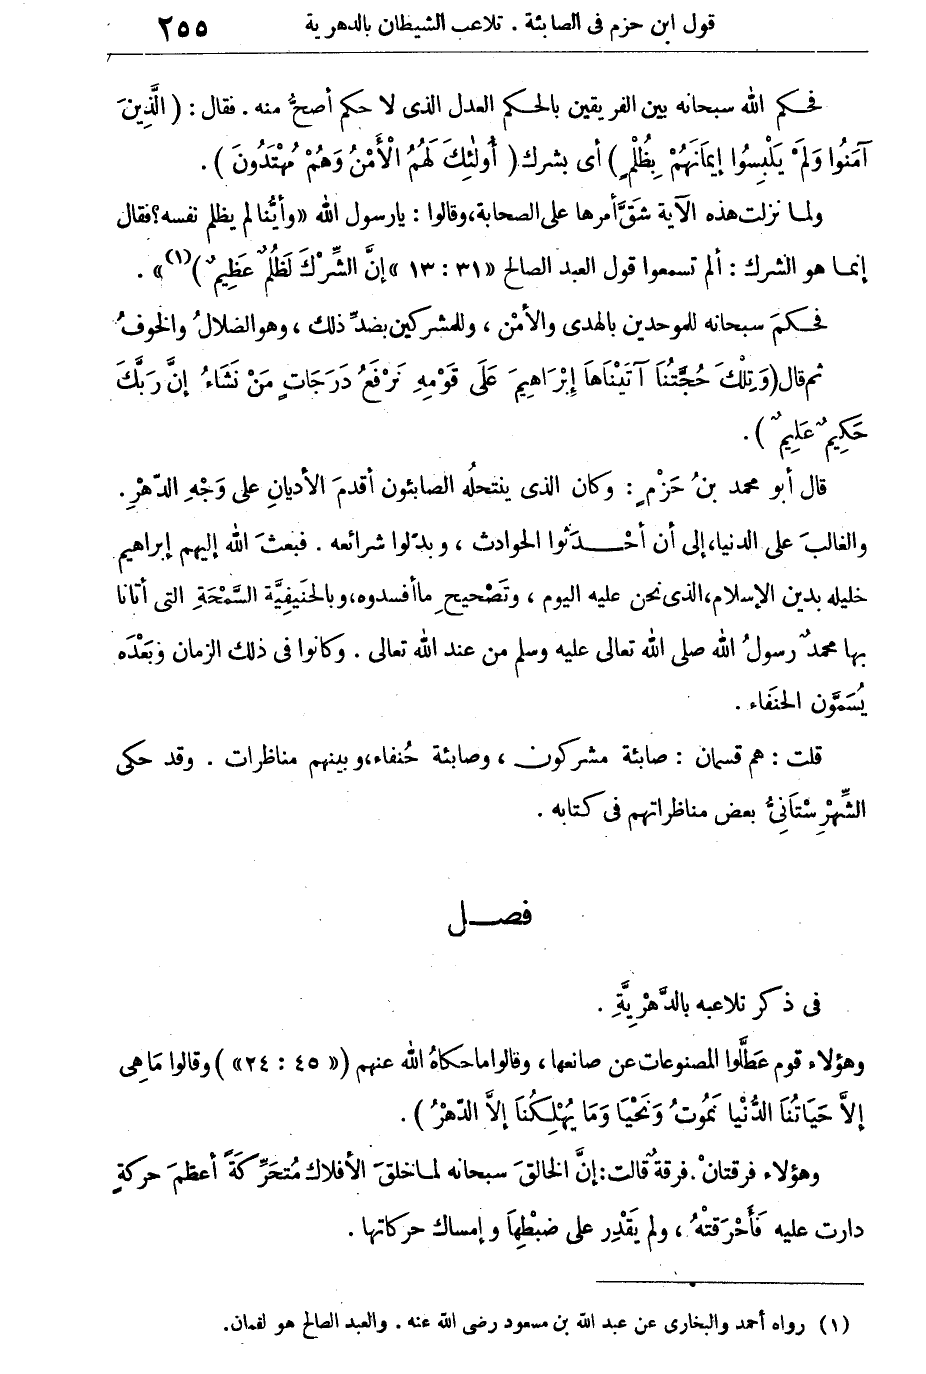 قول ابن حزم فى الصابئة . تلاعب الشيطان بالدهرية ٢٥٥
فحكم الله سبحانه بين الفريقين بالحكم العدل الذى لا حكم أصحُّ منه . فقال : ( الَّذِينَ
آمَنُوا وَلَمْ يَلْبِسُوا إِيمَانَهُمْ بِظُلْمٍ ) أى بشرك ( أُولٰئِكَ لَهُمُ الْأَمْنُ وَهُمْ مُهْتَدُونَ ) .
ولما نزلت هذه الآية شَقَّ أمرها على الصحابة، وقالوا : يارسول الله «وأيُّنا لم يظلم نفسه؟ فقال
إنما هو الشرك : ألم تسمعوا قول العبد الصالح «٣١ : ١٣» إنَّ الشِّرْكَ لَظُلْمٌ عَظِيمٌ )(١)» .
فحكمَ سبحانه للموحدين بالهدى والأمْنِ ، وللمشركين بضدِّ ذلك ، وهو الضلالُ والخوفُ
ثم قال( وَتِلْكَ حُجَّتُنَا آتَيْنَاهَا إِبْرَاهِيمَ عَلَى قَوْمِهِ نَرْفَعُ دَرَجَاتٍ مَنْ نَشَاءُ إنَّ رَبَّكَ
حَكِيمٌ عَلِيمٌ ) .
قال أبو محمد بنُ حَزْمٍ : وكان الذى ينتحلُه الصابئون أقدمَ الأديانِ على وَجْهِ الدّهْرِ .
والغالبَ على الدنيا، إلى أن أحْـدَثوا الحوادث ، وبدّلوا شرائعه . فبعثَ الله إليهم إبراهيم
خليله بدين الإسلام، الذى نحن عليه اليوم ، وتَصْحيحِ ما أفسدوه، وبالحَنيفِيَّة السَّمْحَةِ التى أتانا
بها محمدٌ رسولُ الله صلى الله تعالى عليه وسلم من عند الله تعالى . وكانوا فى ذلك الزمان وَبَعْدَه
يُسَمَّون الحنَفاء .
قلت : هم قسمان : صابئة مشركون ، وصابئة حُنفاء، وبينهم مناظرات . وقد حكى
الشِّهْرِسْتَانِىُّ بعض مناظراتهم فى كتابه .
فصـل
فى ذكر تلاعبه بالدَّهْرِيَّةِ .
وهؤلاء قوم عَطَّلُوا المصنوعات عن صانعها ، وقالوا ما حكاهُ الله عنهم ( «٤٥ : ٢٤» ) وقالوا مَا هِى
إلاَّ حَيَاتُنَا الدُّنْيا نَمُوتُ وَنَحْيَا وَمَا يُهْلِكُنَا إلاَّ الدّهْرُ ) .
وهؤلاء فرقتانْ . فرقةٌ قالت: إنَّ الخالقَ سبحانه لما خلقَ الأفلاكَ مُتحَرِّكَةً أعظمَ حركةٍ
دارت عليه فَأَحْرَقتْهُ ، ولم يَقْدِر على ضبْطِهاَ وإمساك حركاتها .
(١) رواه أحمد والبخارى عن عبد الله بن مسعود رضى الله عنه . والعبد الصالح هو لقمان.